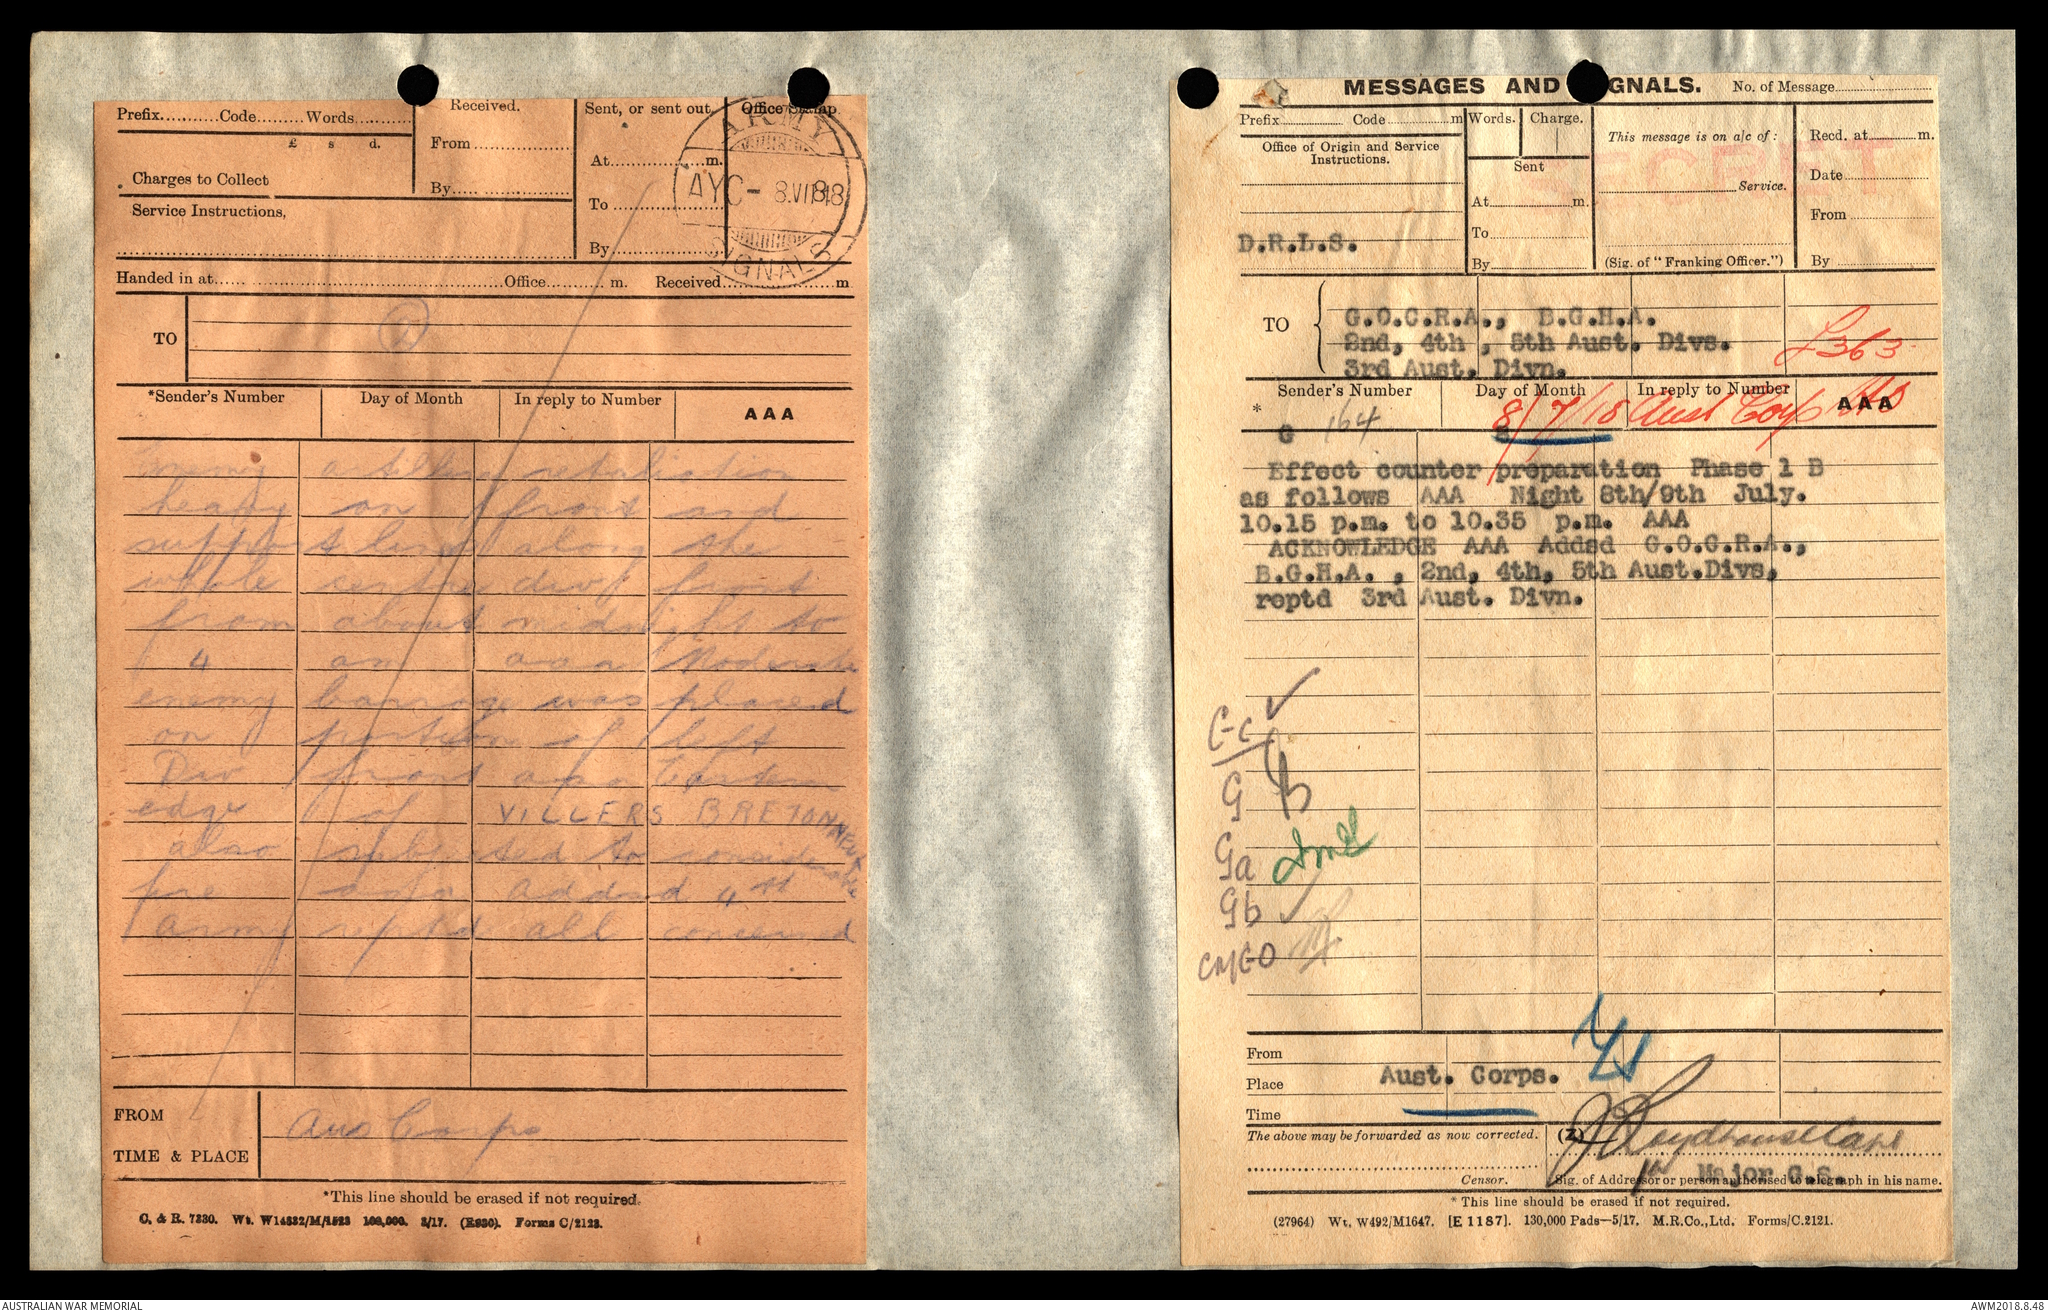 Prefix..........Code.........Words..........
£ s d.
Charges to Collect
Service Instructions,
Received.
From
By
Sent, or sent out
At....................m.
To
By
Office Stamp
ARMY
AYC- 8.VII.18
SIGNALS
Handed in at......Office............ m. Received......................m
TO
*Sender's Number Day of Month In reply to Number AAA
Enemy artillery retaliation
heavy on front and
support lines along the
whole centre divl front
from about midnight to
4 am aaa Moderate
enemy barrage was placed
on portion of left
Div front aaa Eastern
edge of VILLERS BRETONNEUX
also subjected to considerable
fire aaa addsd 4th
Army reptd all concernd
FROM
Aus Corps
TIME & PLACE
*This line should be erased if not required.
C. & R. 7330. Wt. W14832/M/1523 100,000. 3/17. (E930). Forms C/2123.
MESSAGES AND SIGNALS. No. of Message
Prefix Code m Words. Charge.
Office of Origin and Service
Instructions.
D.R.L.S.
Sent
At m.
To
By
This message is on a/c of:
SECRET
Service.
(Sig. of "Franking Officer.")
Recd. at m.
Date
From
By
TO
G.O.C.R.A., B.G.H.A.
2nd, 4th, 5th Aust. Divs.
3rd Aust. Divn.
L363
Sender's Number Day of Month In reply to Number AAA
* G 164 8
8/7/18 Aust Corps HQ
Effect counter preparation Phase 1 B
as follows AAA Night 8th/9th July.
10.15 p.m. to 10.35 p.m. AAA
ACKNOWLEDGE AAA Addsd G.O.C.R.A.,
B.G.H.A. , 2nd, 4th, 5th Aust.Divs,
reptd 3rd Aust. Divn.
G
Ga
Gb
CMGO
From
Place Aust. Corps.
Time
The above may be forwarded as now corrected. (Z)
J S Roydhouse Capt
for Major G.S.
Censor. Sig. of Addressor or person authorised to telegraph in his name.
* This line should be erased if not required.
(27964) Wt. W492/M1647. [E 1187]. 130,000 Pads—5/17. M.R.Co., Ltd. Forms/C.2121.
AUSTRALIAN WAR MEMORIAL
AWM2018.8.48